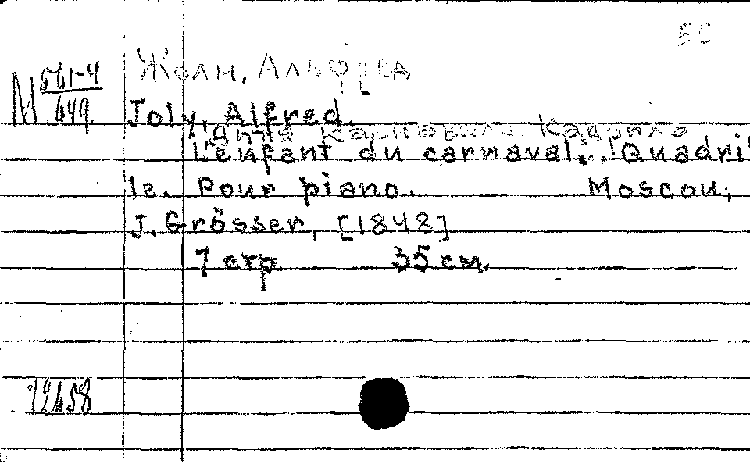 БС
Жоли, Альфред
М 561-4
649.
Joly, Alfred.
Дитя Карнавала. Кадриль
L'enfant du carnaval. Quadril
le. Pour piano. Moscou,
J. Grösser, [1848]
7 стр. 35 см.